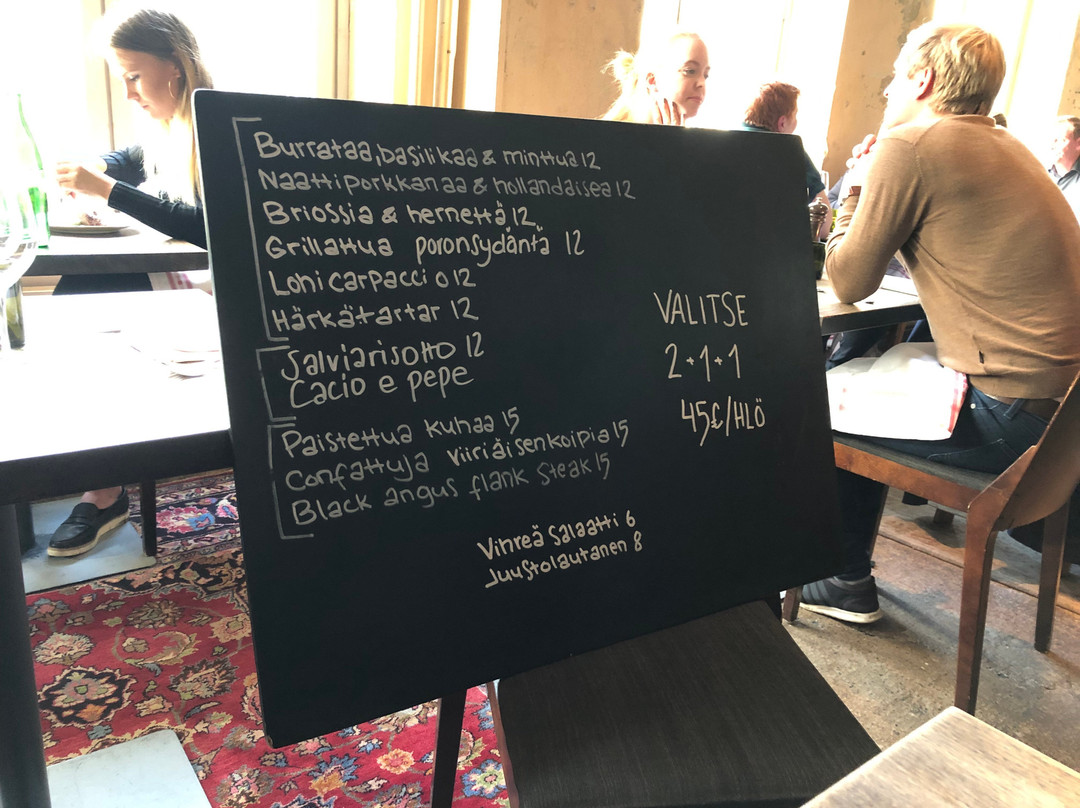 Burrataa, basilikaa & minttua 12
Naattiporkkanaa & hollandaisea 12
Briossia & hernettä 12
Grillattua poronsydäntä 12
Lohicarpaccio 12
Härkätartar 12
Salviarisotto 12
Cacio e pepe
Paistettua kuhaa 15
Confattuja viiriäisenkoipia 15
Black angus flank steak 15
Vihreä salaatti 6
Juustolautanen 8
VALITSE
2+1+1
45€/HLÖ